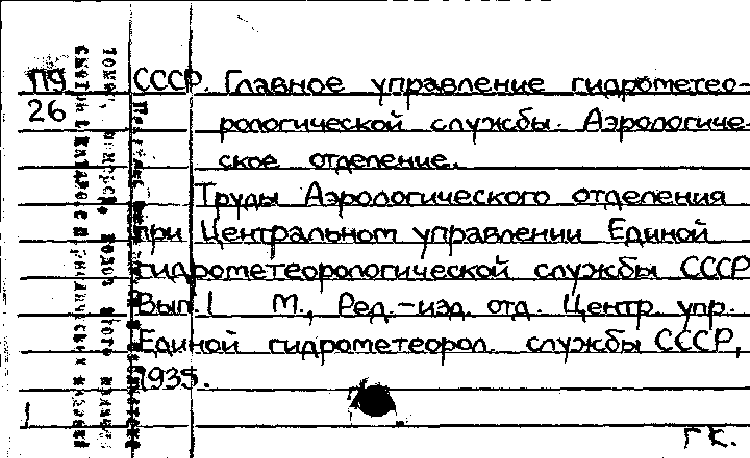 П9 СССР. Главное управление гидрометео-
26 рологической службы. Аэрологиче-
ское отделение.
Труды Аэрологического отделения
при Центральном управлении Единой
гидрометеорологической службы СССР
Вып. 1 М., Ред.-изд. отд. Центр. упр.
Единой гидрометеорол. службы СССР,
1935.
1
ГК.